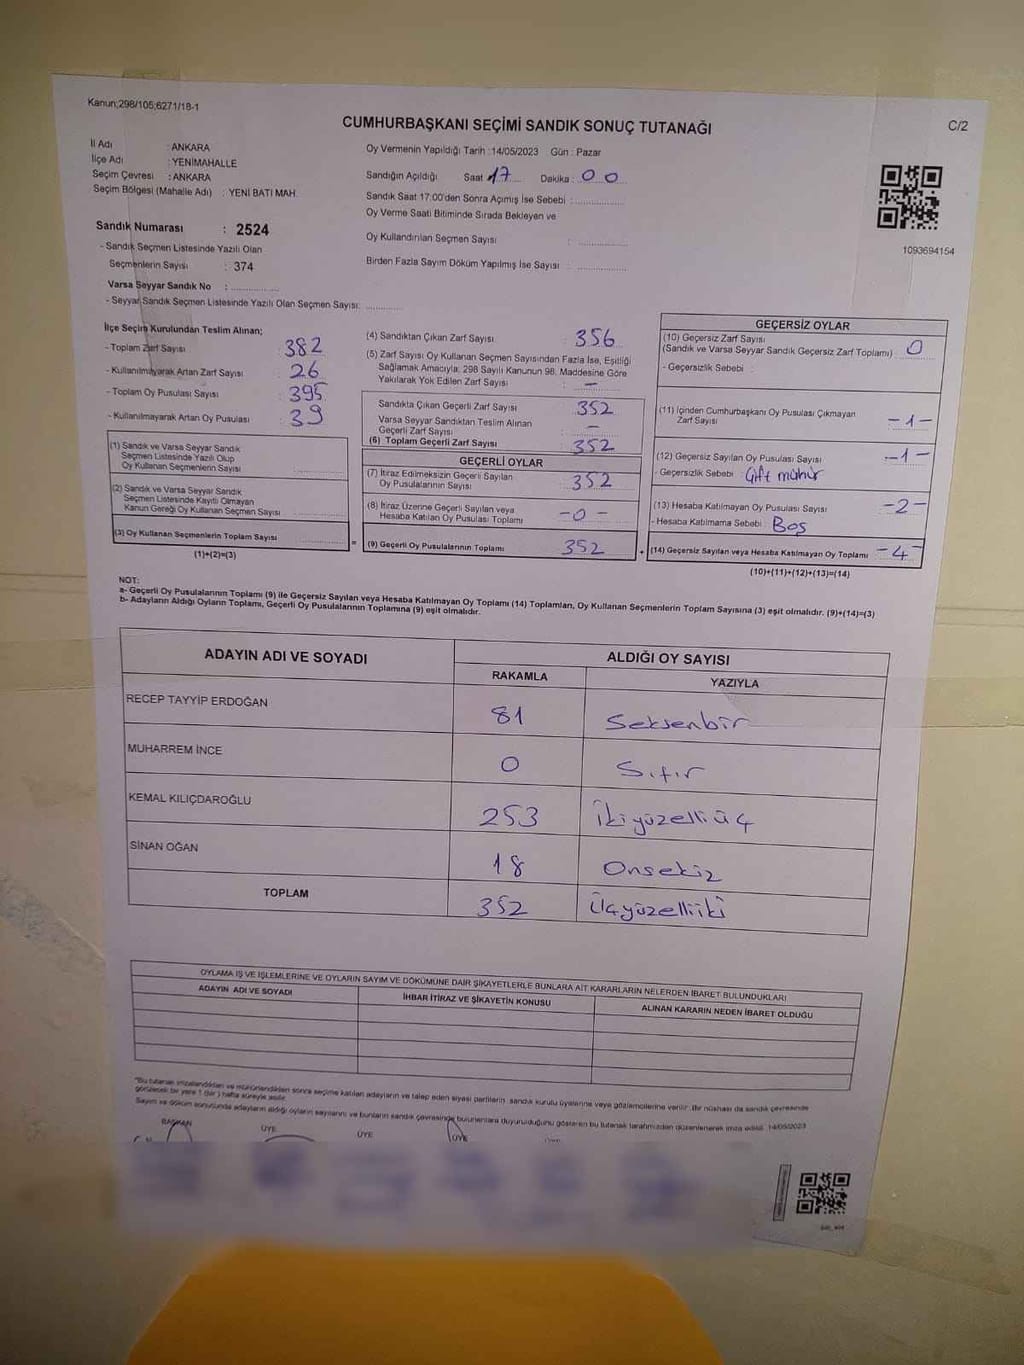 Kanun;298/105;6271/18-1
CUMHURBAŞKANI SEÇİMİ SANDIK SONUÇ TUTANAĞI
C/2
İl Adı : ANKARA
İlçe Adı : YENİMAHALLE
Seçim Çevresi : ANKARA
Seçim Bölgesi (Mahalle Adı) : YENİ BATI MAH.
Sandık Numarası : 2524
- Sandık Seçmen Listesinde Yazılı Olan
Seçmenlerin Sayısı : 374
Varsa Seyyar Sandık No :
- Seyyar Sandık Seçmen Listesinde Yazılı Olan Seçmen Sayısı:
Oy Vermenin Yapıldığı Tarih :14/05/2023 Gün : Pazar
Sandığın Açıldığı Saat 17 Dakika : 00
Sandık Saat 17:00'den Sonra Açımış İse Sebebi :
Oy Verme Saati Bitiminde Sırada Bekleyen ve
Oy Kullandırılan Seçmen Sayısı :
Birden Fazla Sayım Döküm Yapılmış İse Sayısı :
1093694154
İlçe Seçim Kurulundan Teslim Alınan;
- Toplam Zarf Sayısı : 382
- Kullanılmayarak Artan Zarf Sayısı : 26
- Toplam Oy Pusulası Sayısı : 395
- Kullanılmayarak Artan Oy Pusulası : 39
(1) Sandık ve Varsa Seyyar Sandık
Seçmen Listesinde Yazılı Olup
Oy Kullanan Seçmenlerin Sayısı
(2) Sandık ve Varsa Seyyar Sandık
Seçmen Listesinde Kayıtlı Olmayan
Kanun Gereği Oy Kullanan Seçmen Sayısı
(3) Oy Kullanan Seçmenlerin Toplam Sayısı =
(1)+(2)=(3)
(4) Sandıktan Çıkan Zarf Sayısı : 356
(5) Zarf Sayısı Oy Kullanan Seçmen Sayısından Fazla İse, Eşitliği
Sağlamak Amacıyla; 298 Sayılı Kanunun 98. Maddesine Göre
Yakılarak Yok Edilen Zarf Sayısı : -
Sandıkta Çıkan Geçerli Zarf Sayısı : 352
Varsa Seyyar Sandıktan Teslim Alınan
Geçerli Zarf Sayısı : -
(6) Toplam Geçerli Zarf Sayısı 352
GEÇERLİ OYLAR
(7) İtiraz Edilmeksizin Geçerli Sayılan
Oy Pusulalarının Sayısı : 352
(8) İtiraz Üzerine Geçerli Sayılan veya
Hesaba Katılan Oy Pusulası Toplamı -0-
(9) Geçerli Oy Pusulalarının Toplamı 352 +
GEÇERSİZ OYLAR
(10) Geçersiz Zarf Sayısı
(Sandık ve Varsa Seyyar Sandık Geçersiz Zarf Toplamı) : 0
- Geçersizlik Sebebi :
(11) İçinden Cumhurbaşkanı Oy Pusulası Çıkmayan
Zarf Sayısı : -1-
(12) Geçersiz Sayılan Oy Pusulası Sayısı : -1-
- Geçersizlik Sebebi : Çift mühür
(13) Hesaba Katılmayan Oy Pusulası Sayısı -2-
- Hesaba Katılmama Sebebi : Boş
(14) Geçersiz Sayılan veya Hesaba Katılmayan Oy Toplamı -4-
(10)+(11)+(12)+(13)=(14)
NOT:
a- Geçerli Oy Pusulalarının Toplamı (9) ile Geçersiz Sayılan veya Hesaba Katılmayan Oy Toplamı (14) Toplamları, Oy Kullanan Seçmenlerin Toplam Sayısına (3) eşit olmalıdır. (9)+(14)=(3)
b- Adayların Aldığı Oyların Toplamı, Geçerli Oy Pusulalarının Toplamına (9) eşit olmalıdır.
ADAYIN ADI VE SOYADI ALDIĞI OY SAYISI
RAKAMLA YAZIYLA
RECEP TAYYİP ERDOĞAN 81 Seksenbir
MUHARREM İNCE 0 Sıfır
KEMAL KILIÇDAROĞLU 253 İkiyüzelliüç
SİNAN OĞAN 18 Onsekiz
TOPLAM 352 Üçyüzelliiki
OYLAMA İŞ VE İŞLEMLERİNE VE OYLARIN SAYIM VE DÖKÜMÜNE DAİR ŞİKAYETLERLE BUNLARA AİT KARARLARIN NELERDEN İBARET BULUNDUKLARI
ADAYIN ADI VE SOYADI İHBAR İTİRAZ VE ŞİKAYETİN KONUSU ALINAN KARARIN NEDEN İBARET OLDUĞU
"Bu tutanak imzalandıktan ve mühürlendikten sonra seçime katılan adayların ve talep eden siyasi partilerin sandık kurulu üyelerine veya gözlemcilerine verilir. Bir nüshası da sandık çevresinde
görülecek bir yere 1 (bir) hafta süreyle asılır.
Sayım ve döküm sonucunda adayların aldığı oyların sayılarını ve bunların sandık çevresinde bulunanlara duyurulduğunu gösteren bu tutanak tarafımızdan düzenlenerek imza edildi. 14/05/2023
BAŞKAN ÜYE ÜYE ÜYE